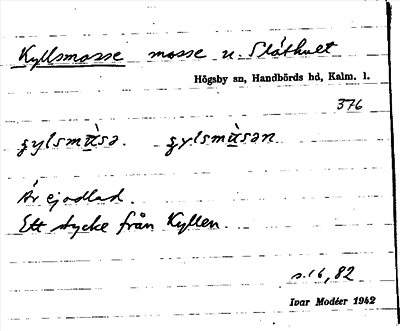 Kyllsmosse mosse n. Slåthult
Högsby sn, Handbörds hd, Kalm. l.
376
Är ej odlad.
Ett stycke från Kyllen.
s. 16, 82
Ivar Modéer 1942